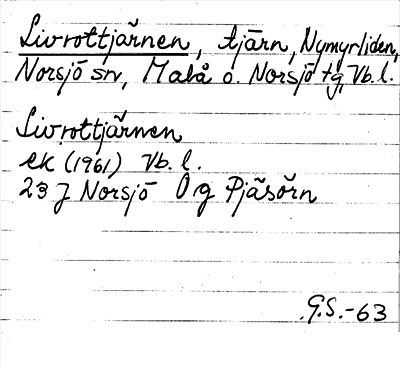 Livrottjärnen, tjärn, Nymyrliden,
Norsjö sn, Malå o. Norsjö tg, Vb. l.
Livrottjärnen
ek (1961) Vb. l.
23 J Norsjö 0 g Pjäsörn
G.S.-63